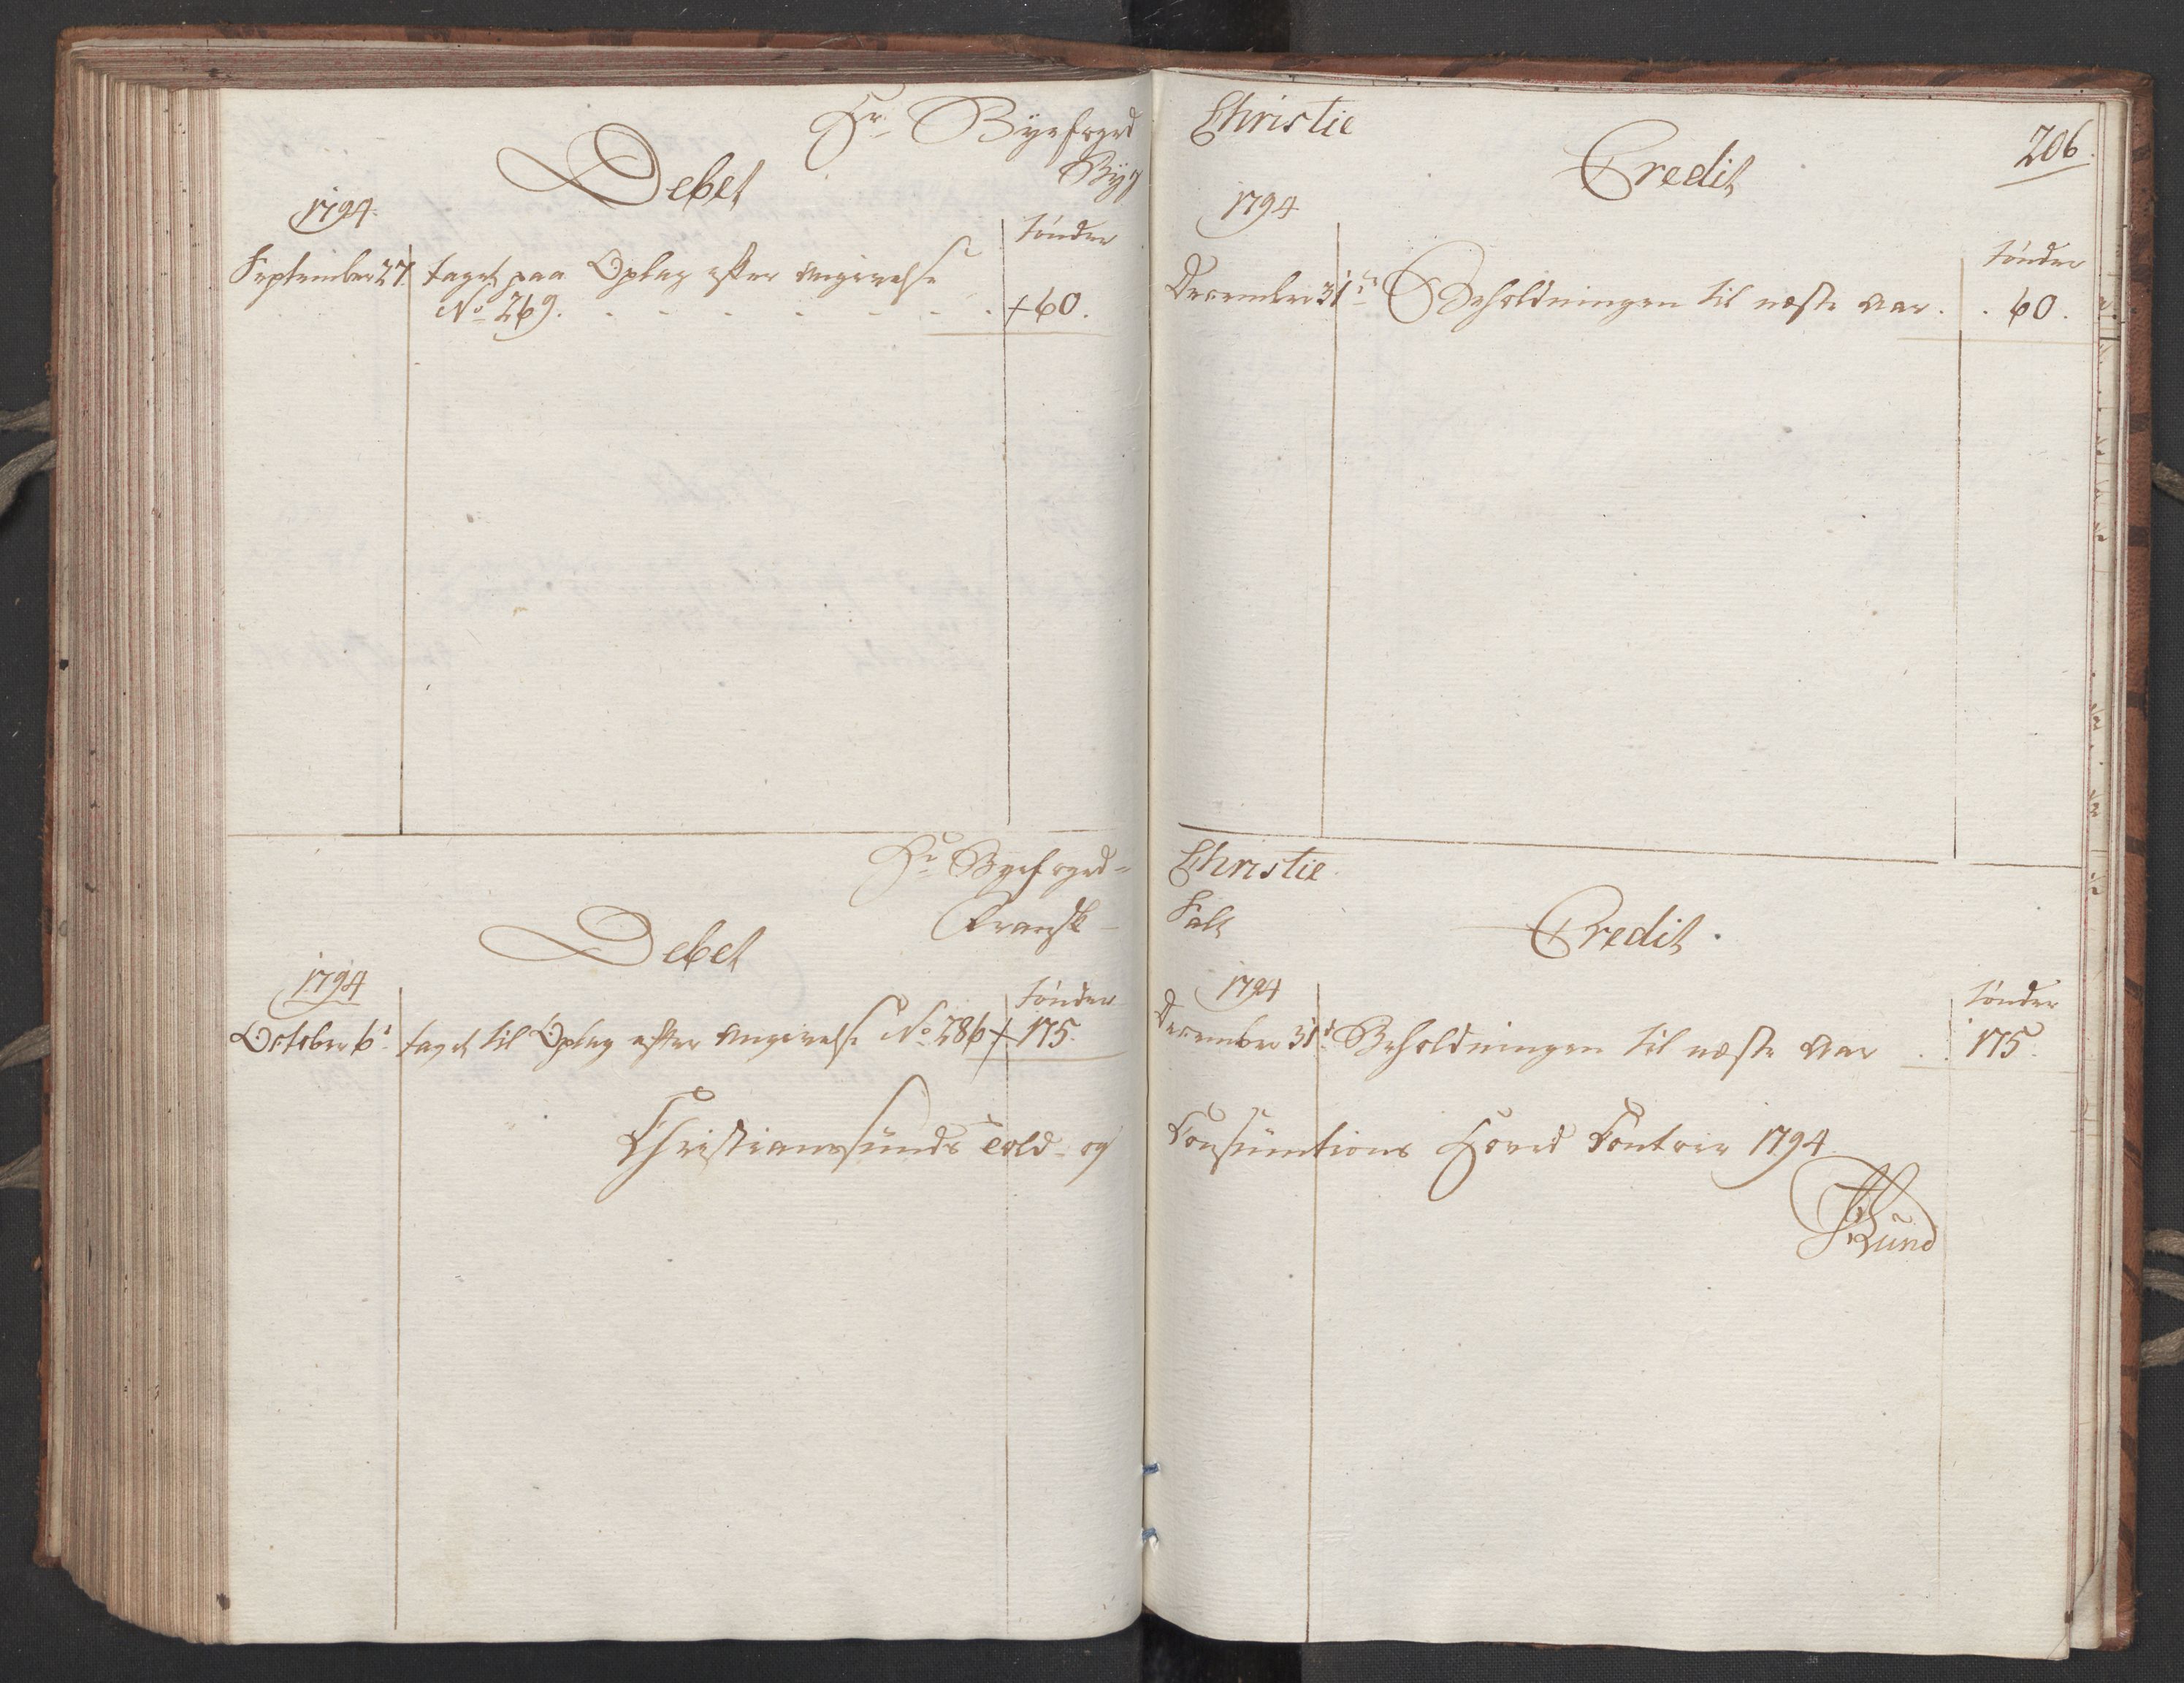 Hr. Byefoged
Byg
Debet
1794.
Tønder
September 27. taget paa Oplag efter Angivelse
No. 269. . . . . . . . +60.
Christie
206.
Credit
1794
Tønder
December 31te Beholdningen til næste Aar. . 60.
Hr. Byefoged=
Fransk -
Debet
1794
Tønder
October 6. taget til Oplag efter Angivelse No. 286 + 175.
Christianssunds Told- og
Christie.
Salt
Credit.
1794
Tønder
December 31. Beholdningen til næste Aar . . 175.
Consumtions Hoved Contoir 1794.